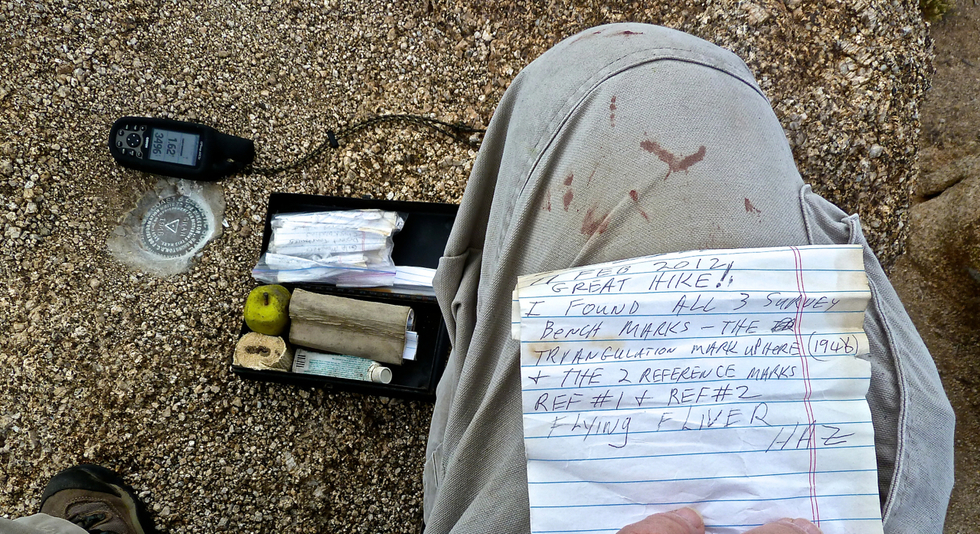 162
3496
FEB 2012
GREAT HIKE!!
I FOUND ALL 3 SURVEY
BENCH MARKS - THE
TRIANGULATION MARK UP HERE (1946)
+ THE 2 REFERENCE MARKS
REF #1 & REF #2
FLYING FLIVER
HAZ